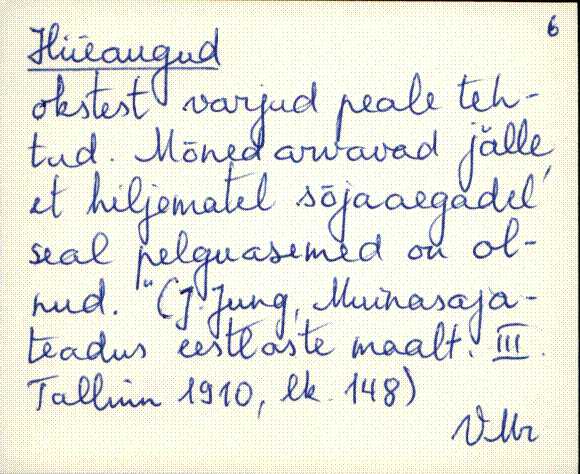 6
Hüeaugud
okstest varjud peale teh-
tud. Mõned arvavad jälle,
et hiljematel sõjaaegadel
seal pelguasemed on ol-
nud." (J. Jung, Muinasaja-
teadus eestlaste maalt. III.
Tallinn 1910, lk. 148)